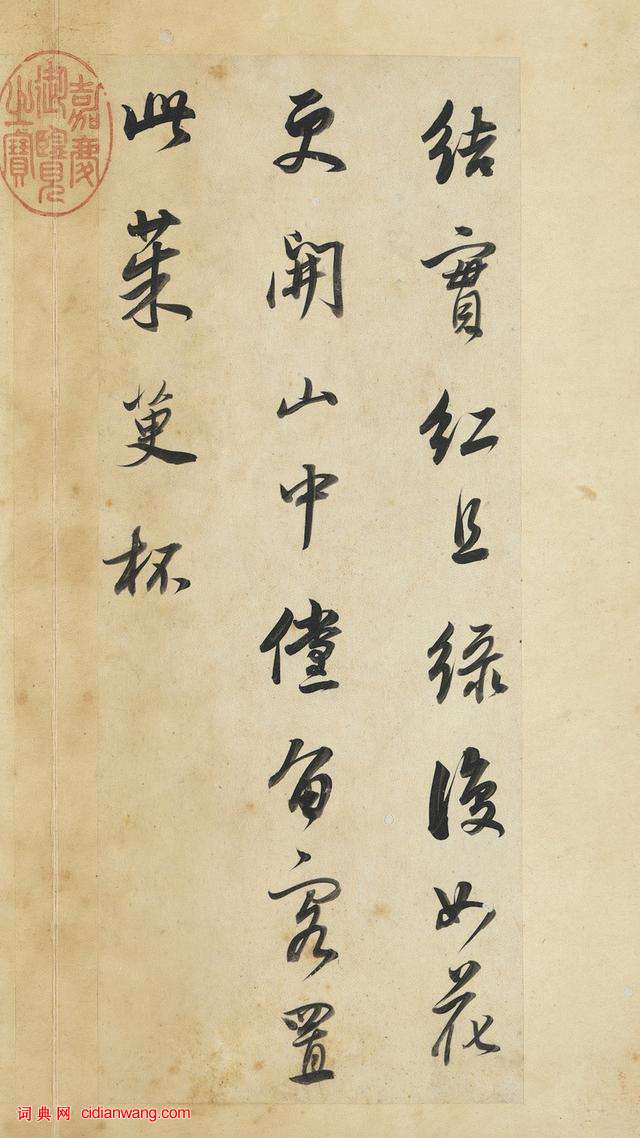 結實紅且綠復如花
更開山中儻留客置
此茱萸杯
嘉慶御覽之寶
词典网 cidianwang.com